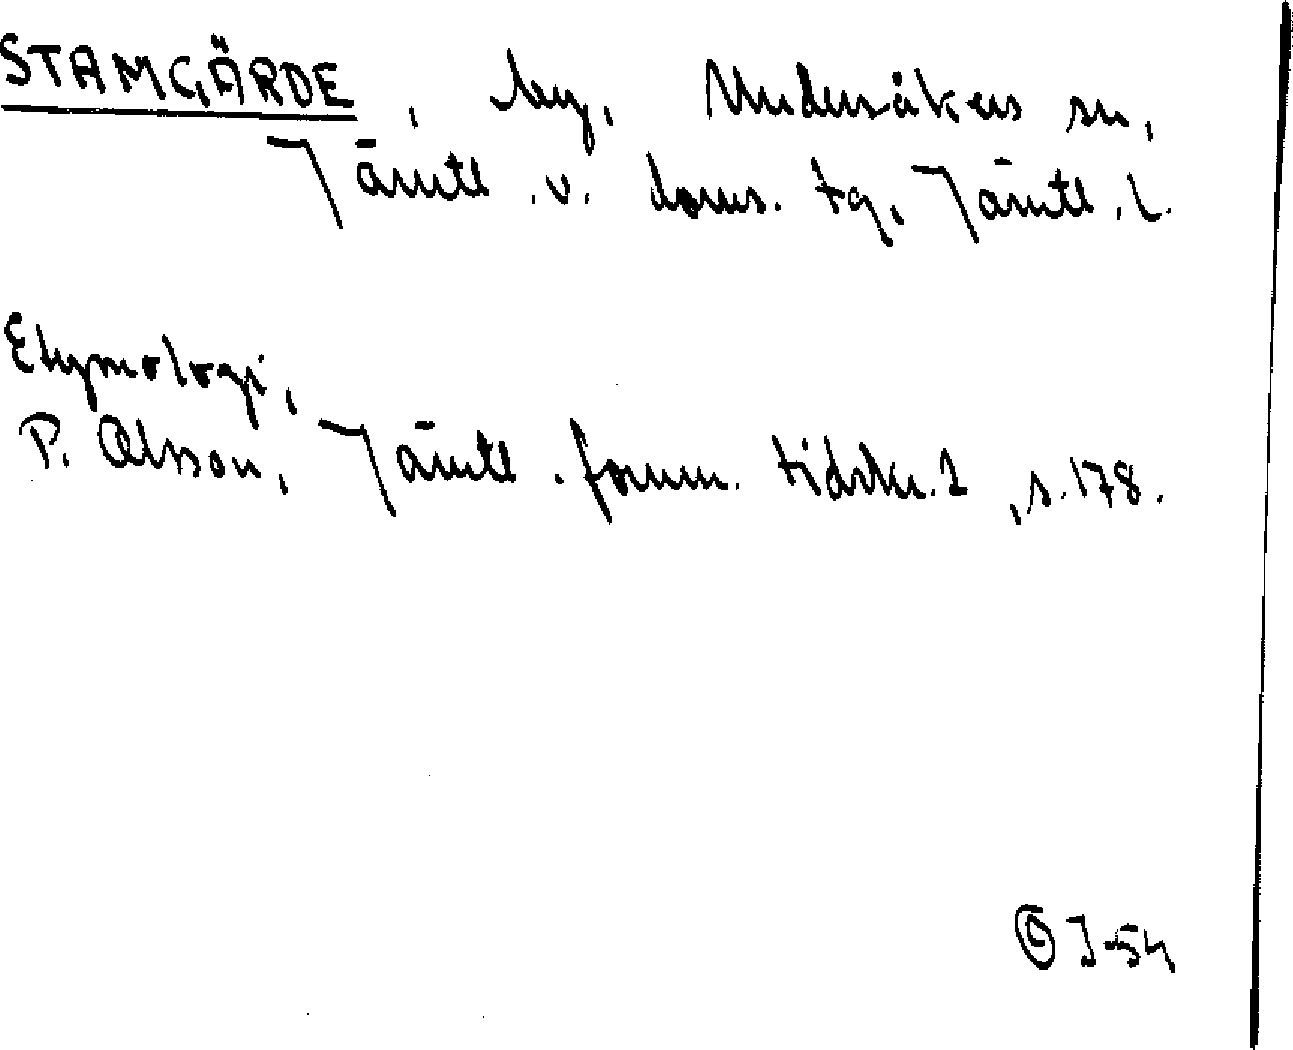 STAMGÄRDE, by, Undersåkers sn,
Jämtl. v. doms. tg, Jämtl. l.
Etymologi,
P. Olsson, Jämtl. fornm. tidskr. 1, s. 178.
J-54